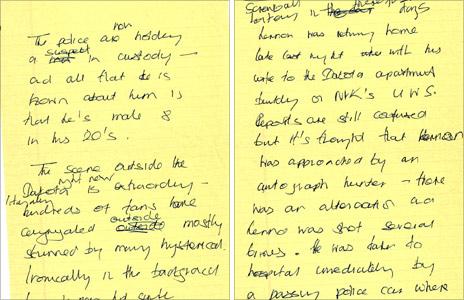 now
The police are holding
a suspect in custody —
and all that is
known about him is
that he's male &
in his 20's.
The scene outside the
right now
Dakota is extraordinary —
literally
hundreds of fans have
outside
congregated mostly
stunned by many hysterical.
Ironically in the background
days
Lennon was returning home
late last night with his
wife to the Dakota apartment
building on NYK's U.W.S.
Reports are still confused
but it's thought that Lennon
was approached by an
autograph hunter — there
was an altercation and
Lennon was shot several
times. He was taken to
hospital immediately by
a passing police car where